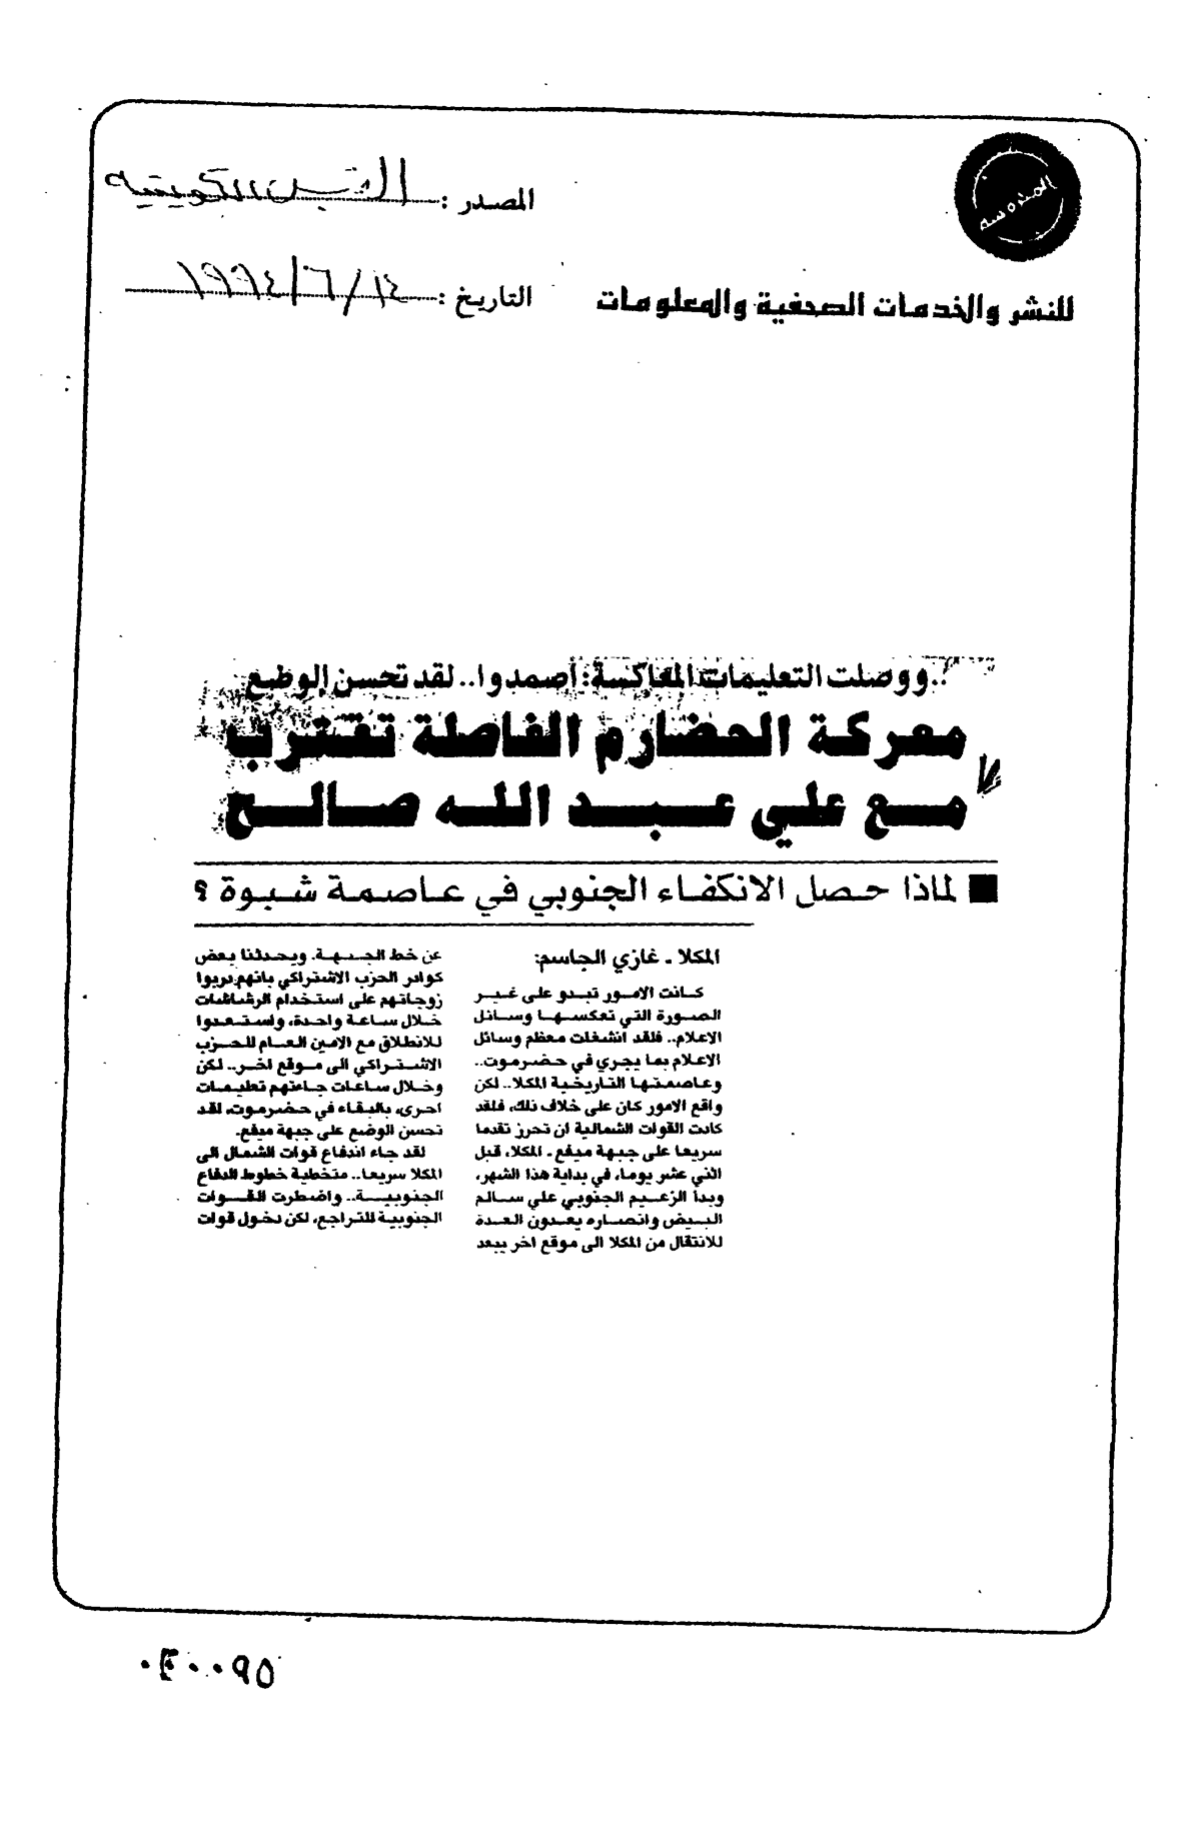 المدوسه
للنشر والخدمات الصحفية والمعلومات
المصدر : القبس الكويتيه
التاريخ : ١٩٩٤/٦/١٤
..ووصلت التعليمات المعاكسة: اصمدوا.. لقد تحسن الوضع
معركة الحضارم الفاصلة تقترب
مع علي عبد الله صالح
■ لماذا حصل الانكفاء الجنوبي في عاصمة شبوة ؟
المكلا ـ غازي الجاسم:
كانت الامور تبدو على غير
الصورة التي تعكسها وسائل
الاعلام.. فلقد انشغلت معظم وسائل
الاعلام بما يجري في حضرموت..
وعاصمتها التاريخية المكلا.. لكن
واقع الامور كان على خلاف ذلك، فلقد
كادت القوات الشمالية ان تحرز تقدما
سريعا على جبهة ميفع ـ المكلا، قبل
اثني عشر يوما، في بداية هذا الشهر،
وبدا الزعيم الجنوبي علي سالم
البيض وانصاره يعدون العدة
للانتقال من المكلا الى موقع اخر يبعد
عن خط الجبهة. ويحدثنا بعض
كوادر الحزب الاشتراكي بانهم دربوا
زوجاتهم على استخدام الرشاشات
خلال ساعة واحدة، واستعدوا
للانطلاق مع الامين العام للحزب
الاشتراكي الى موقع اخر.. لكن
وخلال ساعات جاءتهم تعليمات
اخرى، بالبقاء في حضرموت، لقد
تحسن الوضع على جبهة ميفع.
لقد جاء اندفاع قوات الشمال الى
المكلا سريعا.. متخطية خطوط الدفاع
الجنوبية.. واضطرت القوات
الجنوبية للتراجع، لكن دخول قوات
٠٤٠٠٩٥